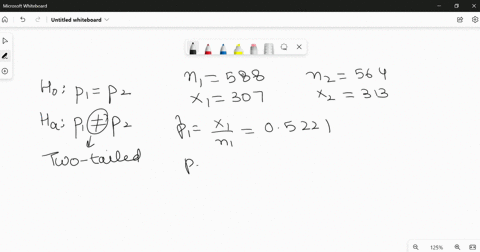 Microsoft Whiteboard
Untitled whiteboard
H₀: p₁ = p₂
Hₐ: p₁ ≠ p₂
Two-tailed
n₁ = 588
n₂ = 564
x₁ = 307
x₂ = 313
p̂₁ = x₁/n₁ = 0.5221
p.
125%